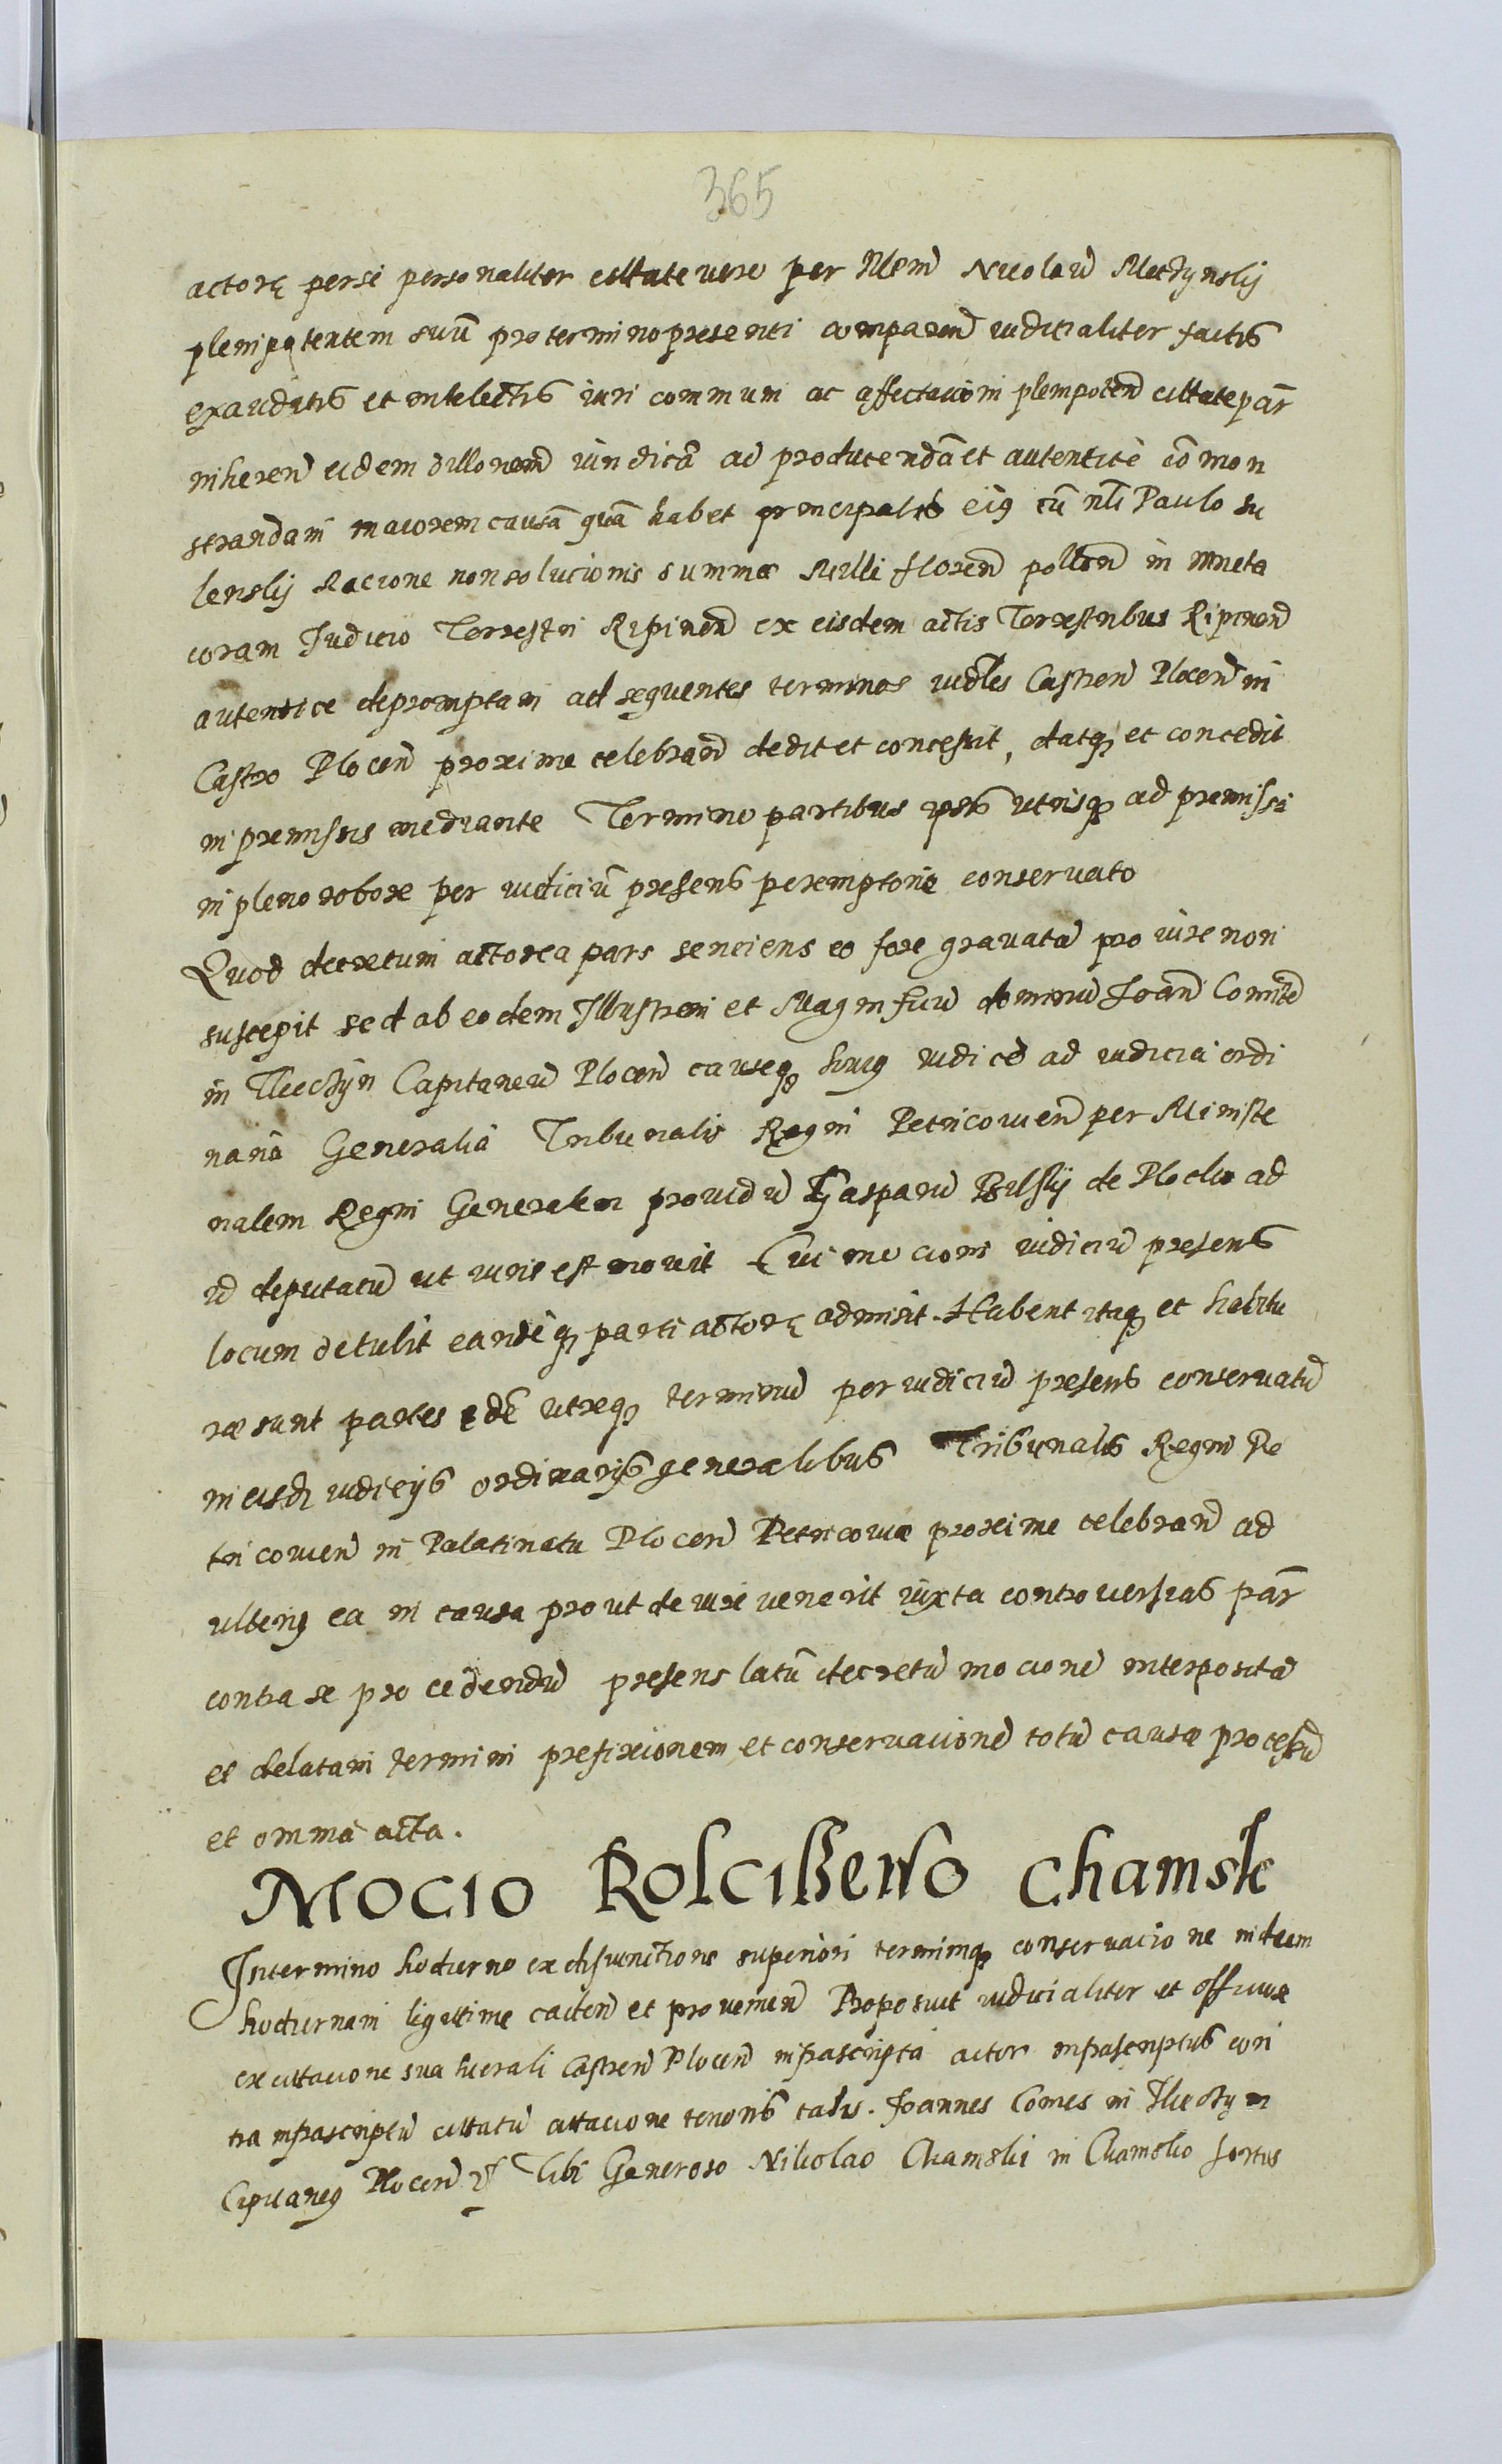 365
actorę per se personaliter cittate vero per Nicolaū Meczynskij
plenipotentem suū pro termino presenti comparen̄ iudicialiter factis
exauditis et intelectis iuri communi ac affectacioni plenipoten̄ cittate par̄
inheren̄ eidem dillonem̄ iuridicā ad producendā et autenticè cōmon
strandam maiorem causā quā habet principalis eiꝯ cū nli Paulo Su
lenskij racione non solucionis summæ Milli floren̄ pollcn̄ in mneta
coram Judicio Terrestri Ripinen̄ ex eisdem actis Terrestribus Ripinen̄
autentice depromptam ad sequentes terminos iudles Castren̄ Plocen̄ in
Castro Plocen̄ proxime celebran̄ dedit et concessit, datq₃ et concedit
in premissis mediante Termino partibus ipsis utrisq₃ ad premissa
in pleno robore per iudiciū presens peremptorie conservato
Quod decretum actorea pars senciens eo fore gravatā pro iure non
suscepit sed ab eodem Illustrem et Magnificū dominū Joan̄ Comite
in Thęczyn Capitaneū Plocen̄ causęq₃ huiꝯ iudice ad iudicia ordi
naria Generalia Tribunalis Regni Petricovien̄ per Ministe
rialem Regni Generalem providū Gasparū Bilskij de Plocko ad
id deputatū ut iuris est movit Cui mocioni iudiciū presens
locum detulit eandēq₃ parti actorę admisit. Habent itaq₃ et habitu
ræ sunt partes edē utreq₃ terminū per iudiciū presens conservatū
in eisd₃ iudicijs ordinarijs generalibus Tribunalis Regni Pe
tricovien̄ in Palatinatu Plocen̄ Petricovia proxime celebran̄ ad
ulteriꝯ ea in causa prout de iure venerit iuxta controversias par̄
contra se procedendū presens latū decretū mocionē interpositā
et delatam termini prefixionem et conservacionē totū causæ processū
et omnia acta.
MOCIO Rosciszewo Chamsk
In termino hodierno ex disiunctione superiori terminiq₃ conservacione in diem
hodiernam ligittime caden̄ et provenien̄ Proposuit iudicialiter et officiose
ex cittacione sua literali Castren̄ Plocen̄ infrascripta actor infrascriptus con
tra infrascriptū cittatū cittacione tenoris talis. Joannes Comes in Theczyn
Capitaneꝯ Plocen̄ Tibi Generoso Nikolao Chamski in Chamsko sortis